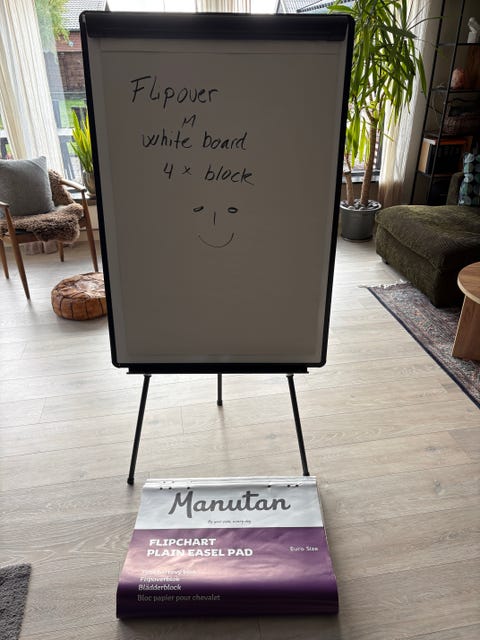 Flipover
M
white board
4 x block
Manutan
By your side, every day
FLIPCHART
PLAIN EASEL PAD
Euro Size
Flipoverblok
Blädderblock
Bloc papier pour chevalet